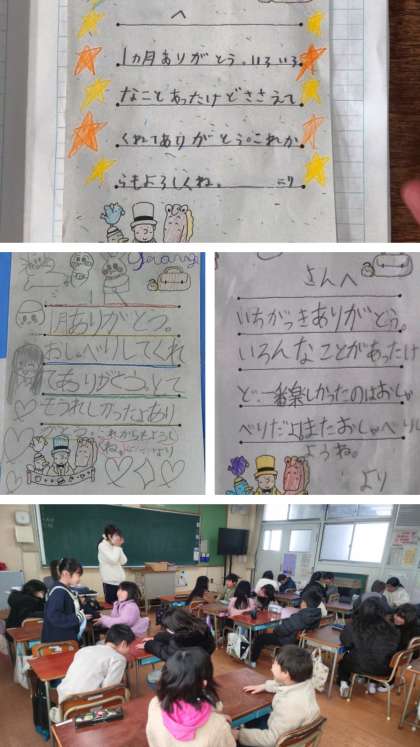 へ
1ヵ月ありがとう。いろいろ
なことあったけどささえて
くれてありがとう。これか
らもよろしくね。
1月ありがとう。
おしゃべりしてくれ
てありがとう。とて
もうれしかったよあり
がとう。これからもよろし
くね。 より
さんへ
いちがつきありがとう。
いろんなことがあったけ
ど、一番楽しかったのはおしゃ
べりだよ。またおしゃべりし
ようね。
より